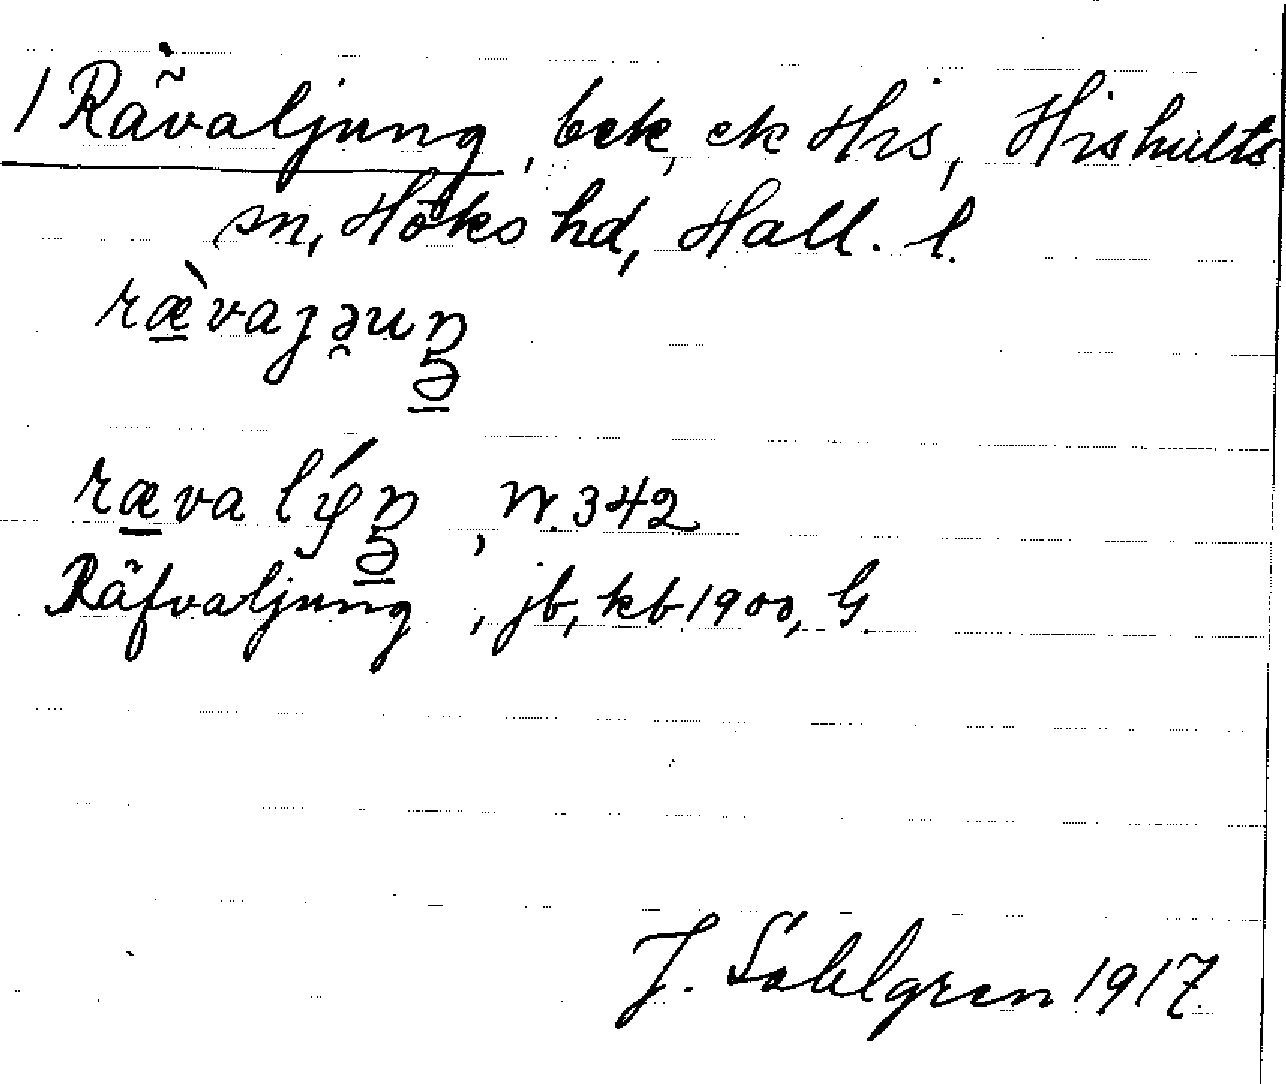 1 Rävaljung, bek, ek His, Hishults
sn, Höks hd, Hall. l.
ræ̀vaȷə̯uŋ
ræva lýŋ, N. 342
Räfvaljung, jb, kb 1900, G.
J. Sahlgren 1917